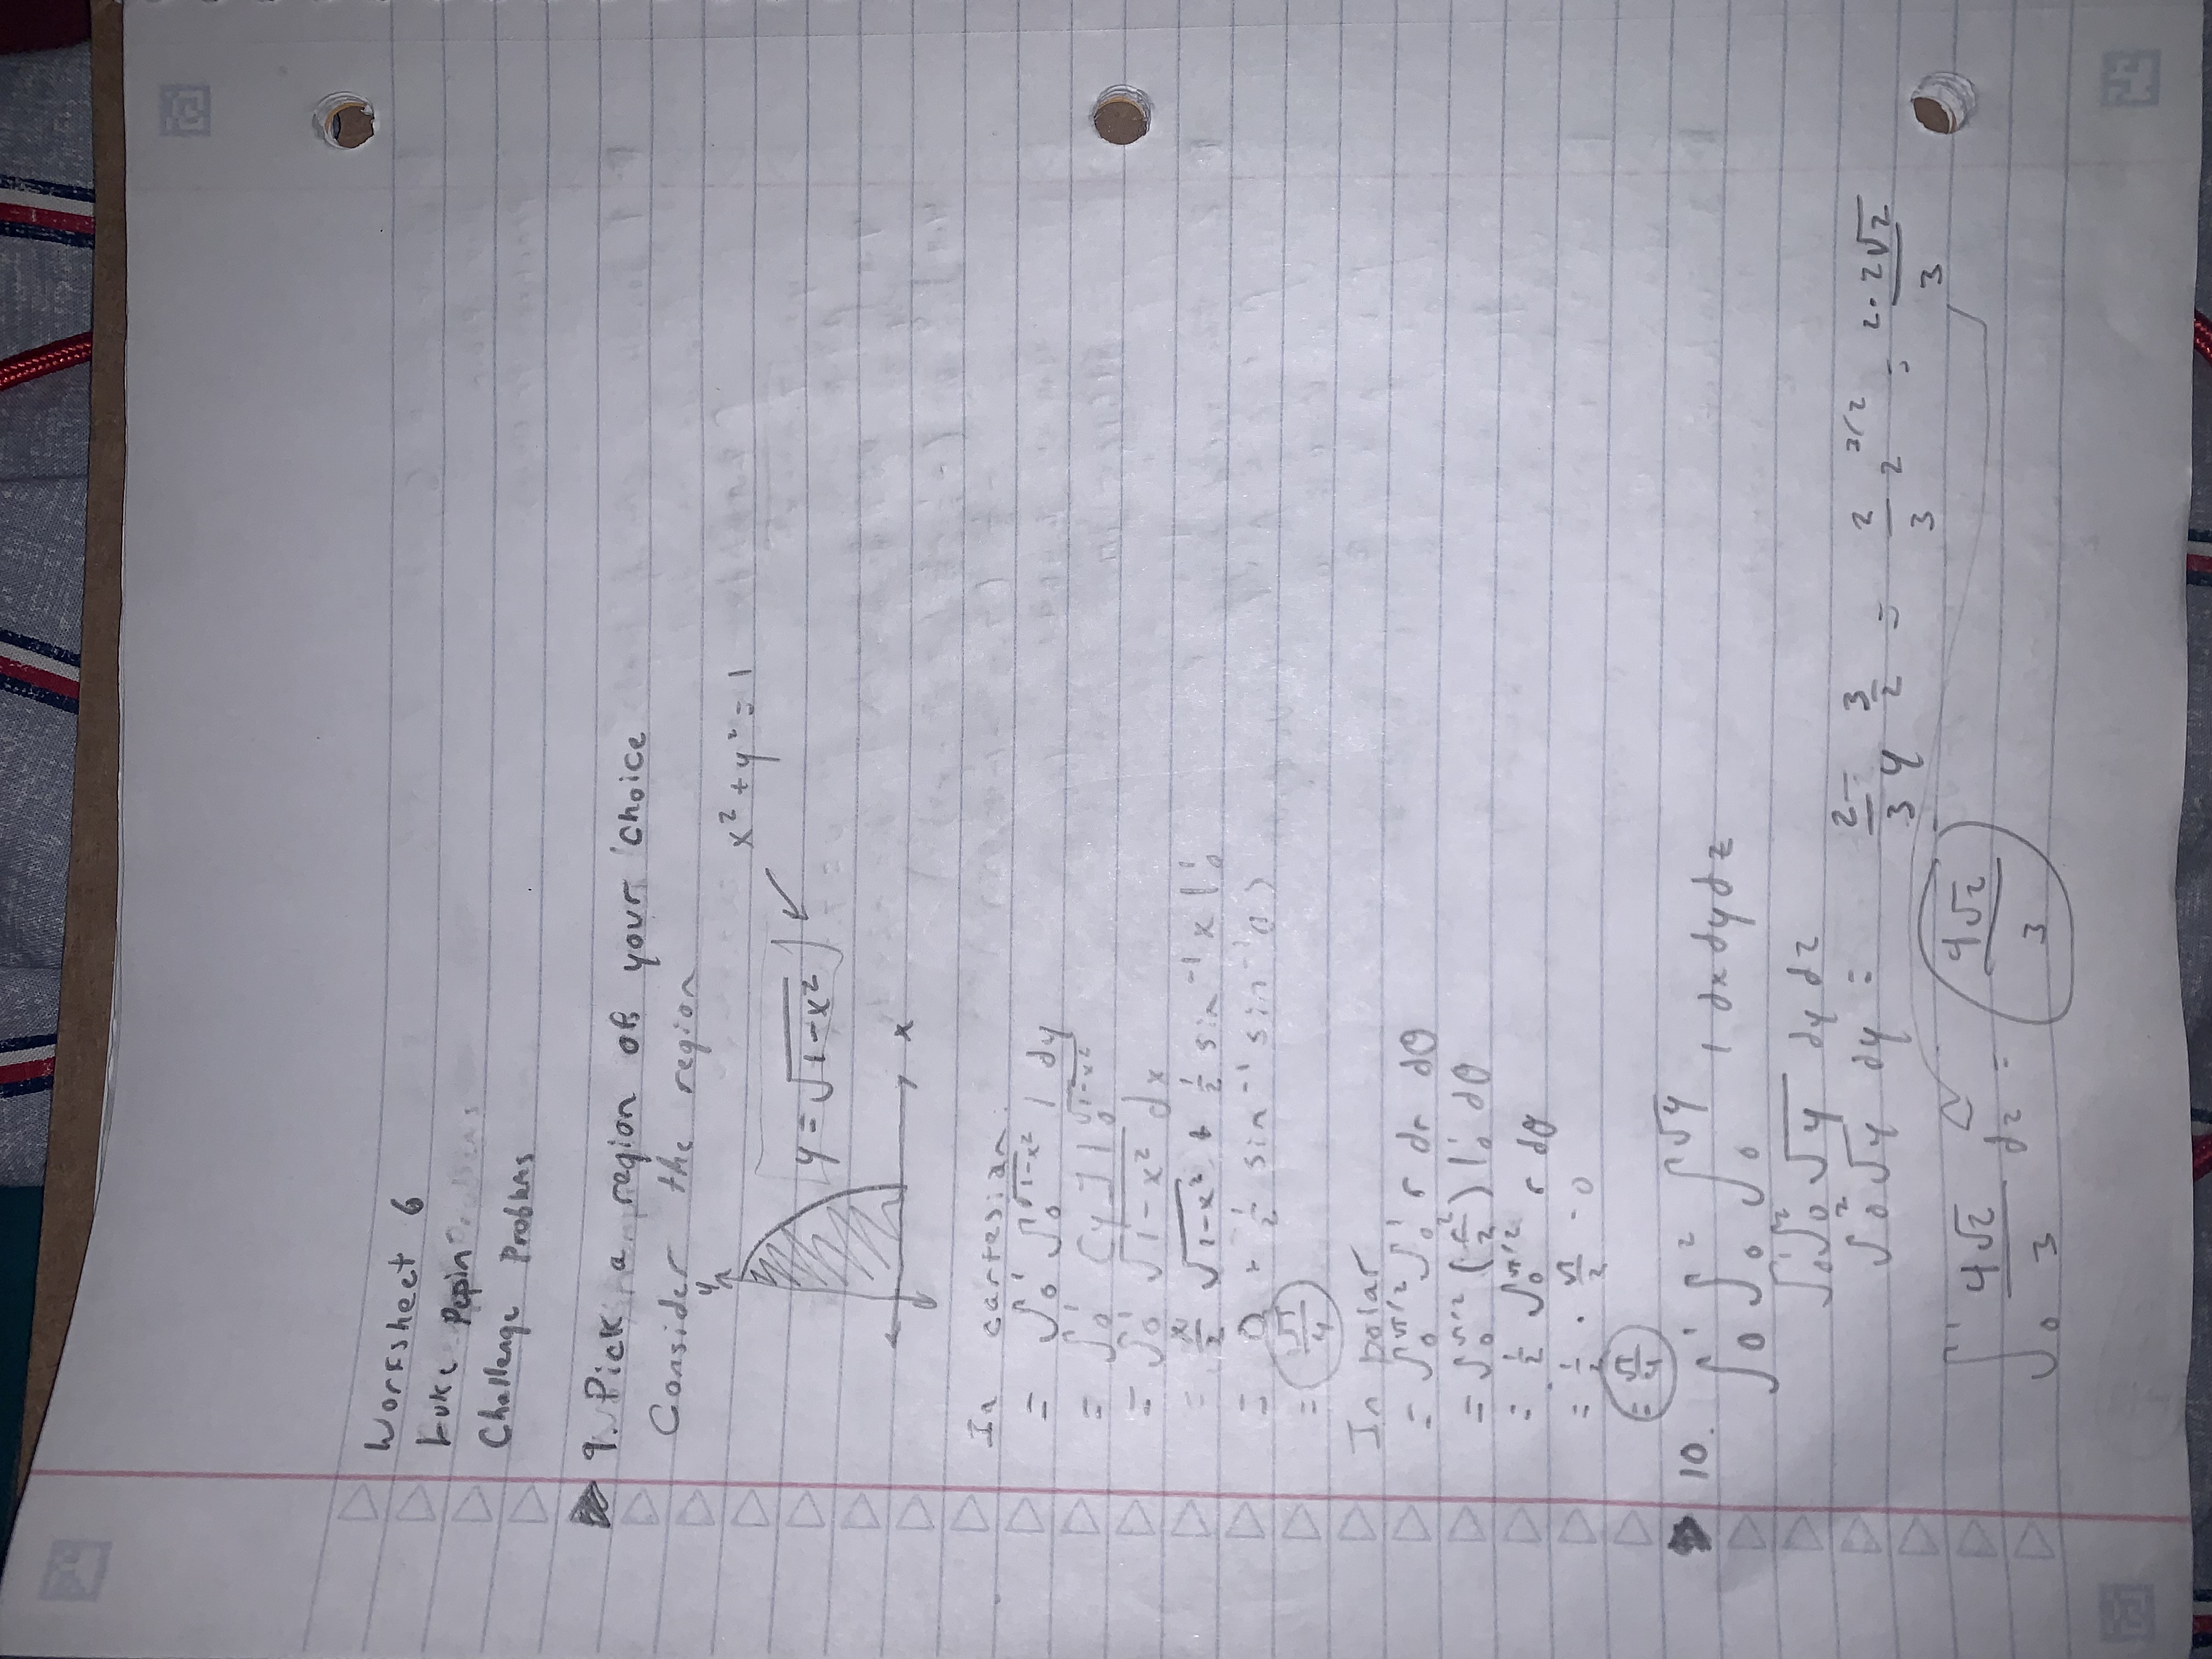 Worksheet 6
Luke Pepin
Challenge Problems
9. Pick a region of your choice
Consider the region
y
x² + y² = 1
y = √(1-x²)
x
In cartesian:
= ∫₀¹ ∫₀^√(1-x²) 1 dy
= ∫₀¹ [y]|₀^√(1-x²)
= ∫₀¹ √(1-x²) dx
= x/2 √(1-x²) + 1/2 sin⁻¹ x |₀¹
= 0 + 1/2 sin⁻¹ sin⁻¹(1)
= π/4
In polar
= ∫₀^π/2 ∫₀¹ r dr dθ
= ∫₀^π/2 (r²/2)|₀¹ dθ
= 1/2 ∫₀^π/2 r dθ
= 1/2 · π/2 - 0
= π/4
10. ∫₀¹ ∫₀² ∫₀^√y 1 dx dy dz
∫₀¹ ∫₀² √y dy dz
∫₀² √y dy = 2/3 y 3/2 = 2/3 2^3/2 = 2·2√2/3
∫₀¹ 4√2/3 dz = 4√2/3